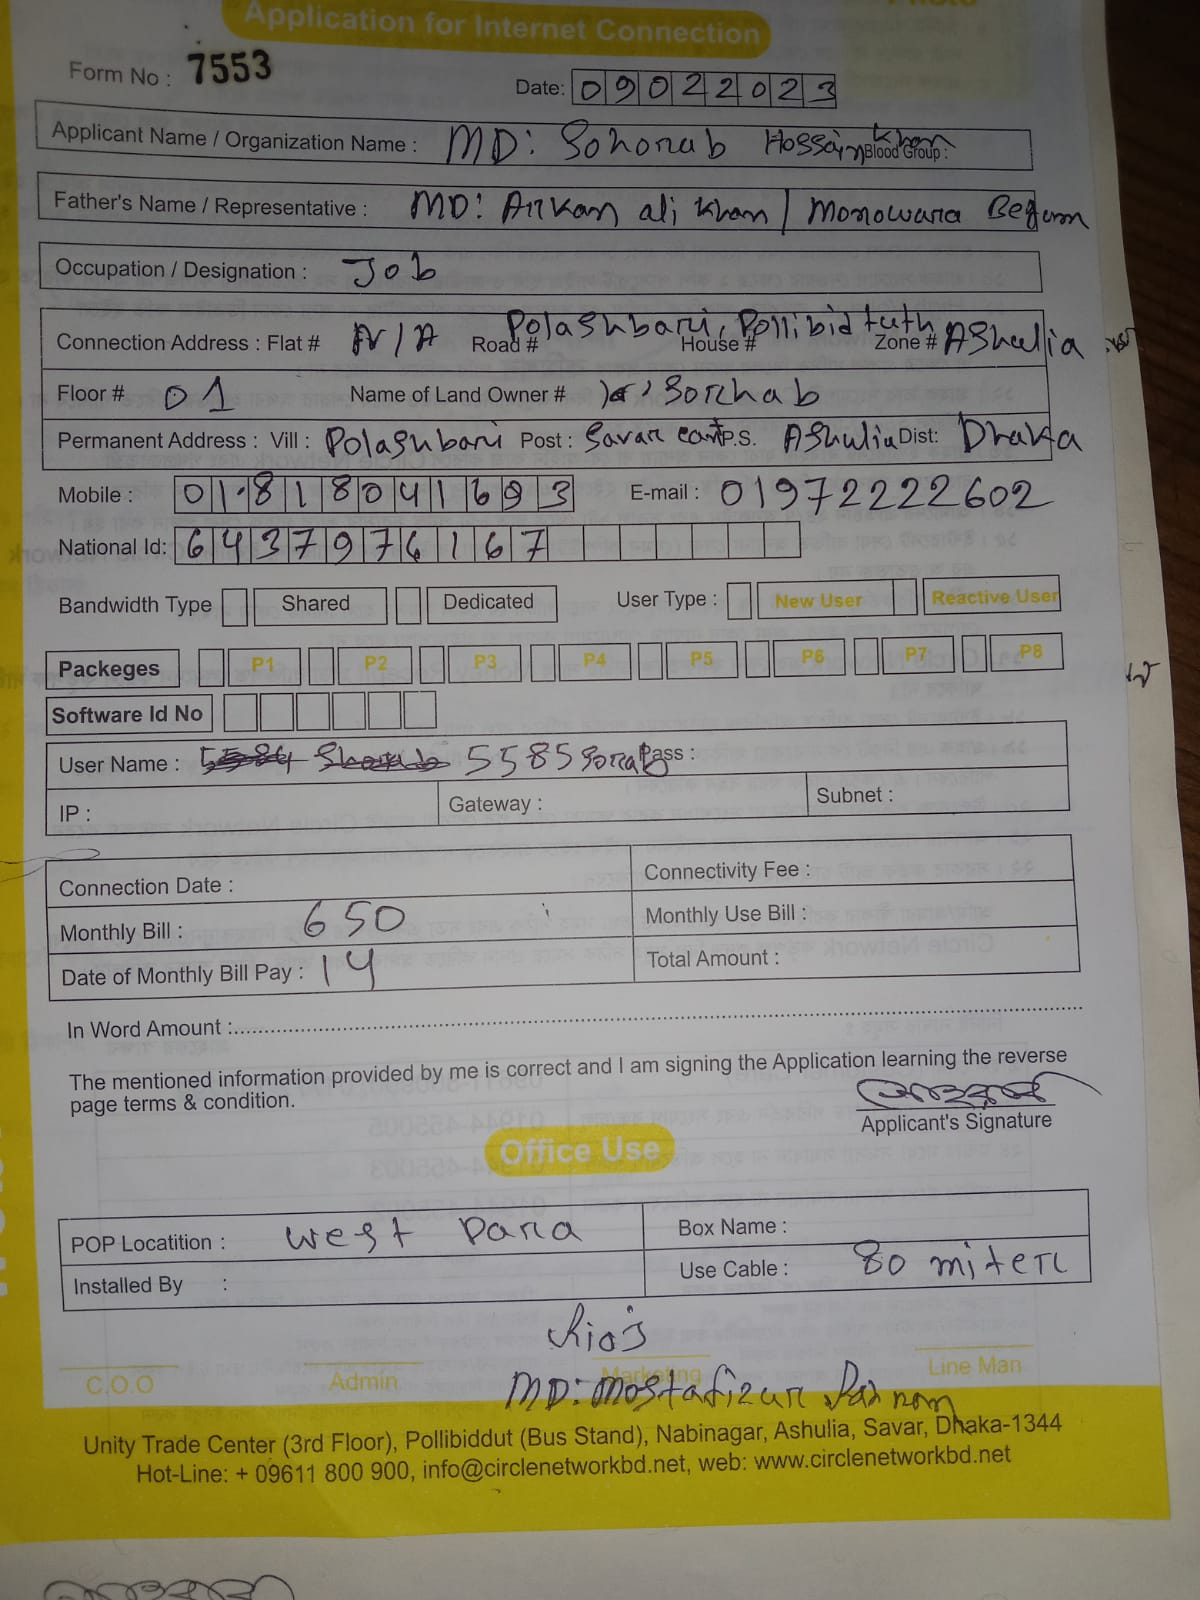 Application for Internet Connection
Form No : 7553
Date: 09022023
Applicant Name / Organization Name : MD: Sohorab Hossain Khan Blood Group :
Father's Name / Representative : MD: Arkan ali Khan / Monowara Begum
Occupation / Designation : Job
Connection Address : Flat # N/A Road # House # Polashbari, Pollibidtuth Zone # AShulia
Floor # 01 Name of Land Owner # Sorhab
Permanent Address : Vill : Polashbari Post : Savar cant P.S. AShulia Dist: Dhaka
Mobile : 01818041693 E-mail : 01972222602
National Id: 6437976167
Bandwidth Type Shared Dedicated User Type : New User Reactive User
Packeges P1 P2 P3 P4 P5 P6 P7 P8
Software Id No
User Name : 5585Sorrab Pass :
IP : Gateway : Subnet :
Connection Date : Connectivity Fee :
Monthly Bill : 650 Monthly Use Bill :
Date of Monthly Bill Pay : 14 Total Amount :
In Word Amount :
The mentioned information provided by me is correct and I am signing the Application learning the reverse
page terms & condition.
Applicant's Signature
Office Use
POP Locatition : west para Box Name :
Installed By : Use Cable : 80 miter
C.O.O Admin Marketing Line Man
MD: Mostafizur
Unity Trade Center (3rd Floor), Pollibiddut (Bus Stand), Nabinagar, Ashulia, Savar, Dhaka-1344
Hot-Line: + 09611 800 900, info@circlenetworkbd.net, web: www.circlenetworkbd.net